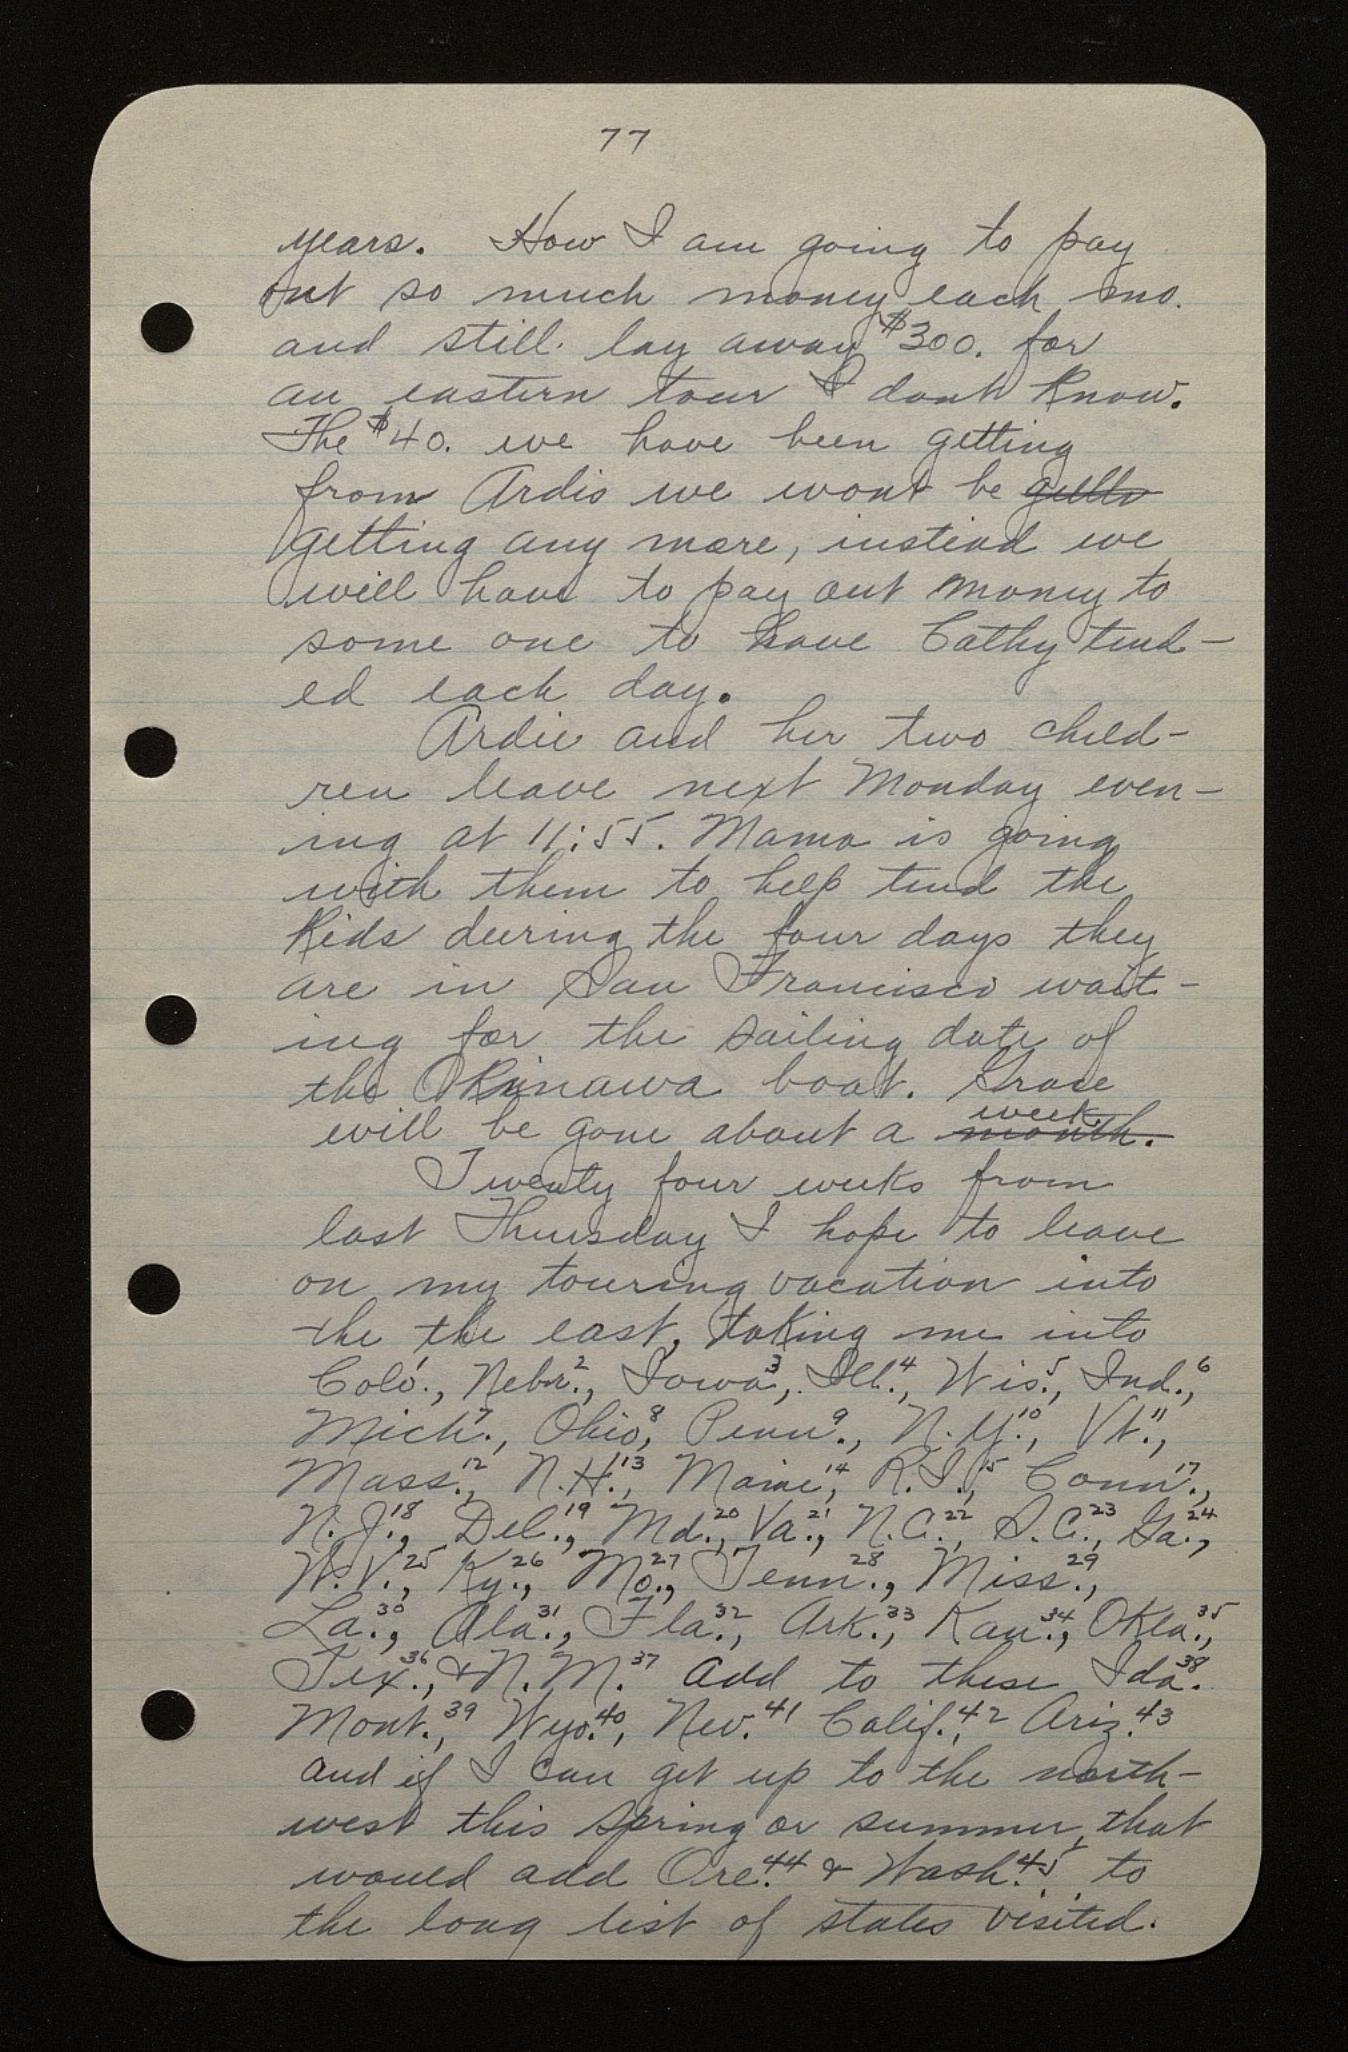 77
years. How I am going to pay
out so much money each mo.
and still lay away $300. for
an eastern tour I dont know.
The $40. we have been getting
from Ardis we wont be
getting any more, instead we
will have to pay out money to
some one to have Cathy tend-
ed each day.
Ardie and her two child-
ren leave next Monday even-
ing at 11:55. Mama is going
with them to help tend the
kids during the four days they
are in San Francisco wait-
ing for the sailing date of
the Okinawa boat. Grace
will be gone about a month. week.
Twenty four weeks from
last Thursday I hope to leave
on my touring vacation into
the the east, taking me into
Colo.¹, Nebr.², Iowa³, Ill.⁴, Wis.⁵, Ind.⁶,
Mich.⁷, Ohio⁸, Penn.⁹, N.Y.¹⁰, Vt.¹¹,
Mass.¹², N.H.¹³, Maine¹⁴, R.I.¹⁵, Conn.¹⁷,
N.J.¹⁸, Del.¹⁹, Md.²⁰, Va.²¹, N.C.²², S.C.²³, Ga.²⁴,
W.V.²⁵, Ky.²⁶, Mo.²⁷, Tenn.²⁸, Miss.²⁹,
La.³⁰, Ala.³¹, Fla.³², Ark.³³, Kan.³⁴, Okla.³⁵,
Tex.³⁶, & N.M.³⁷ add to these Ida.³⁸
Mont.³⁹, Wyo.⁴⁰, Nev.⁴¹ Calif.⁴², Ariz.⁴³
and if I can get up to the north-
west this spring or summer, that
would add Ore.⁴⁴ & Wash.⁴⁵ to
the long list of states visited.